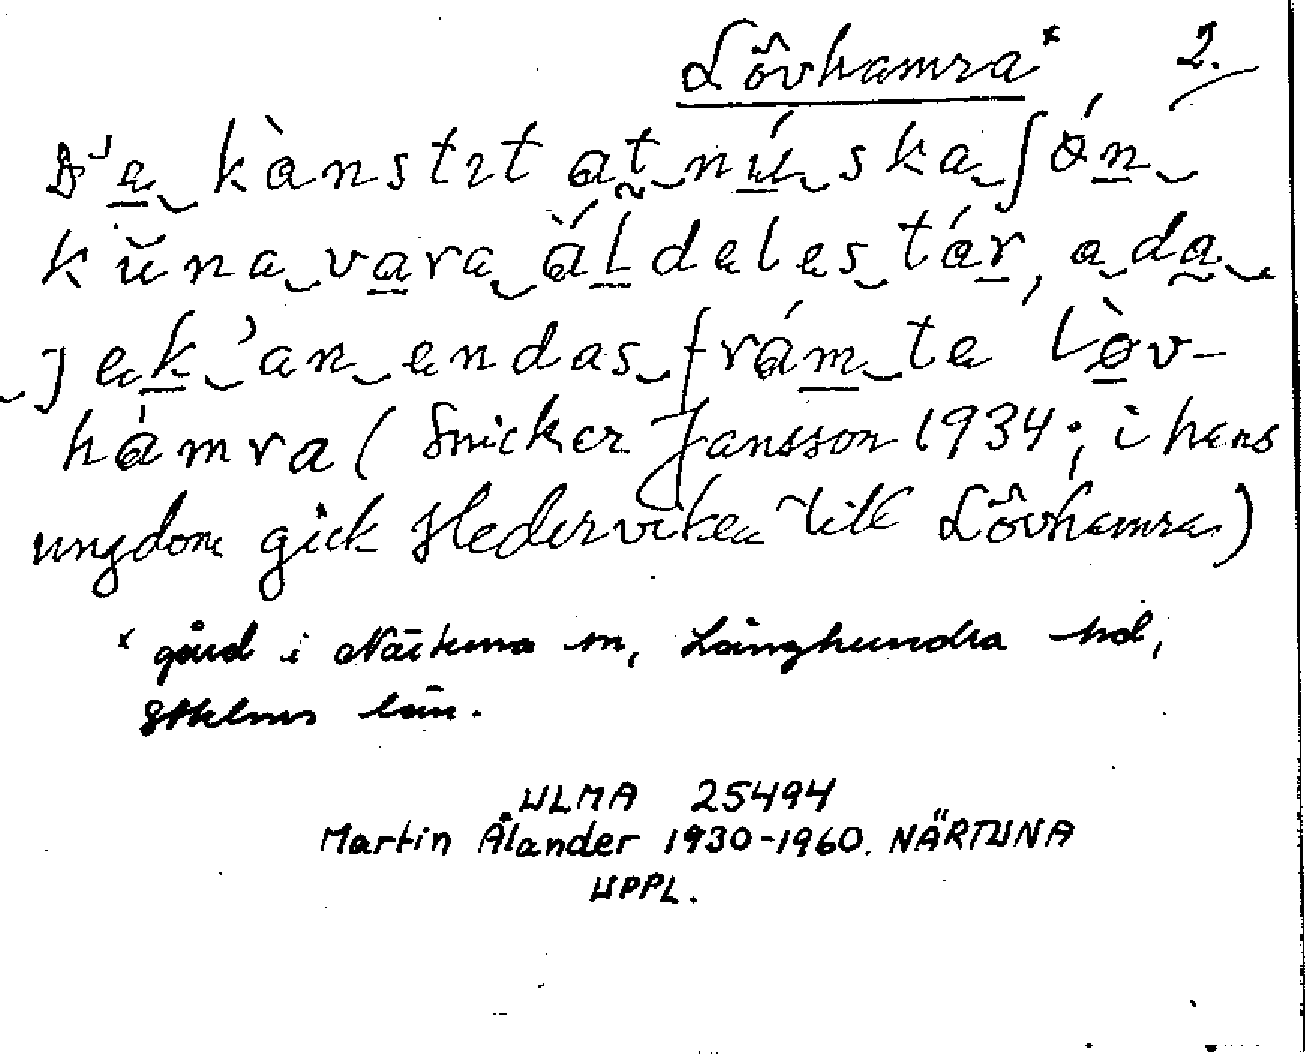 Lôvhamra* 2.
D'e kànstɪt at nú ska ʃǿn
kŭna vara ăĺdeles tár, a da
jek 'an endas frám te lòv-
hàmra (Snicker Jansson 1934; i hans
ungdom gick Hederviken till Lôvhamra)
* gård i Närtuna sn, Långhundra hd,
Sthlms län.
ULMA 25494
Martin Ålander 1930-1960. NÄRTUNA
UPPL.